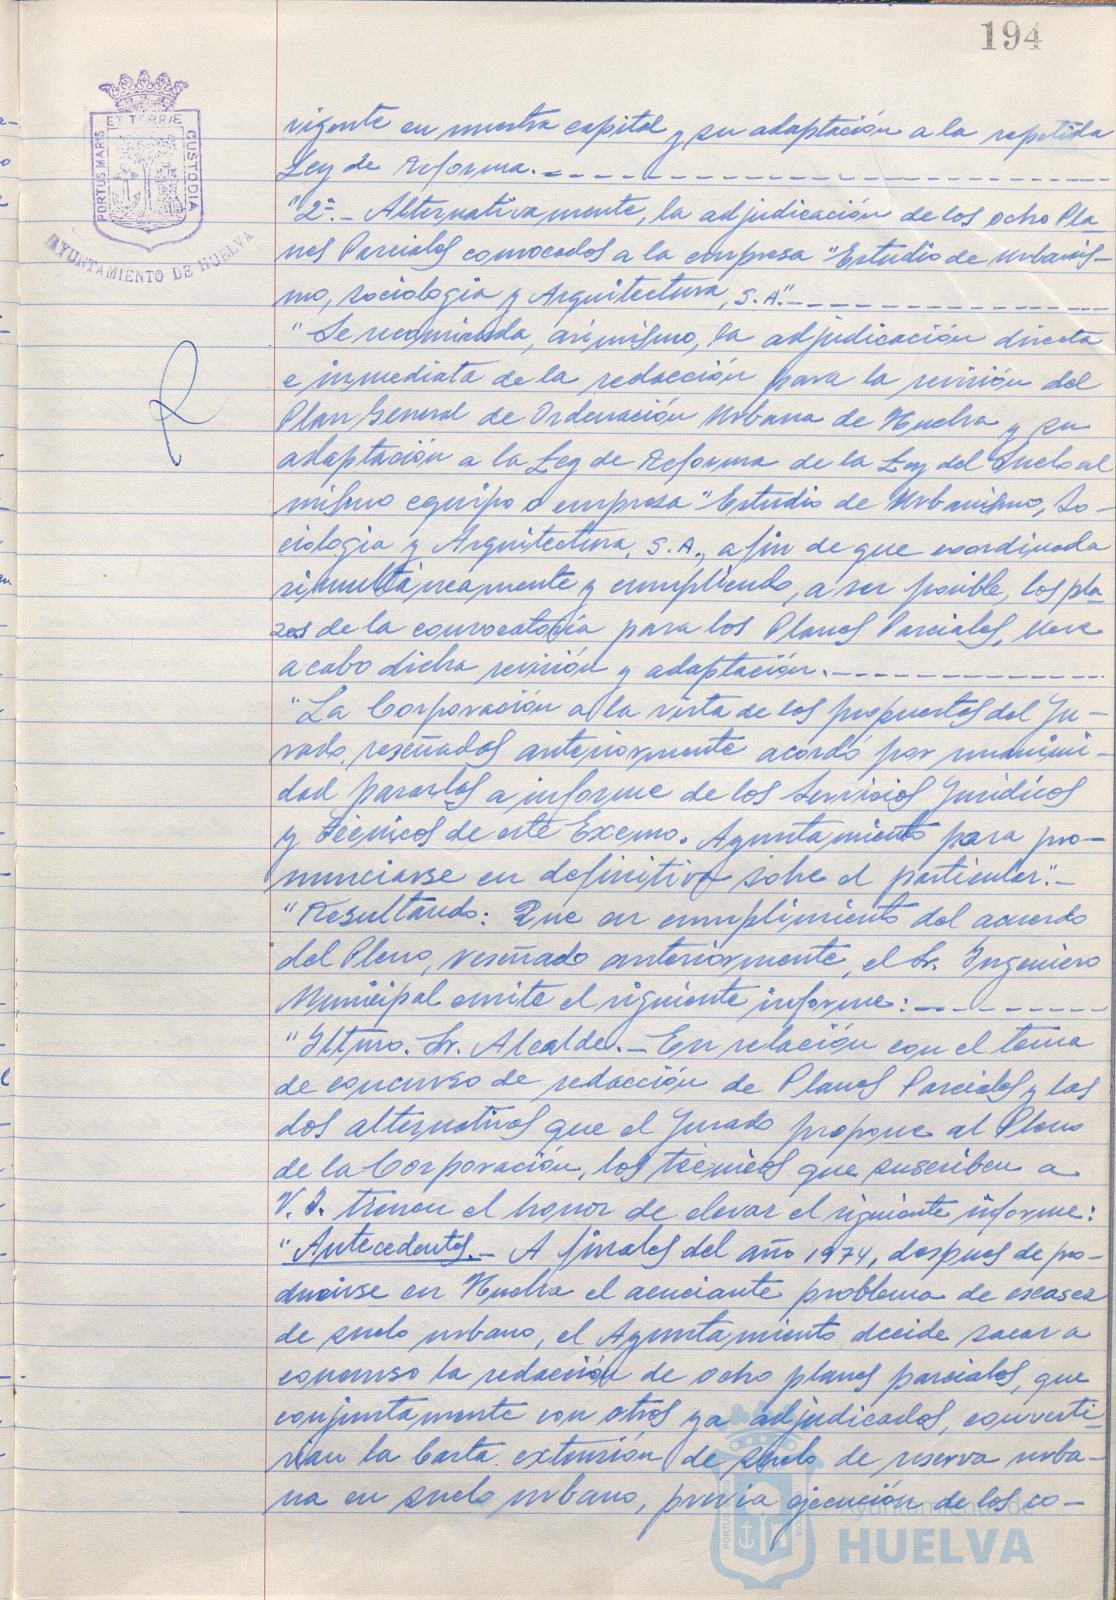 194
PORTUS MARIS ET TERRÆ CUSTODIA
AYUNTAMIENTO DE HUELVA
vigente en nuestra capital y su adaptación a la repetida
Ley de Reforma.
"2ª.- Alternativamente, la adjudicación de los ocho Pla-
nes Parciales convocados a la empresa "Estudio de Urbanis-
mo, sociologia y Arquitectura, S.A."
"Se recomienda, asimismo, la adjudicación directa
e inmediata de la redacción para la revisión del
Plan General de Ordenación Urbana de Huelva y su
adaptación a la Ley de Reforma de la Ley del Suelo al
mismo equipo o empresa "Estudio de Urbanismo, So-
ciologia y Arquitectura, S.A., a fin de que coordinada
simultáneamente y cumpliendo, a ser posible, los pla-
zos de la convocatoria para los Planes Parciales, lleve
a cabo dicha revisión y adaptación.
"La Corporación a la vista de los propuestas del Ju-
rado, reseñados anteriormente acordó por unanimi-
dad pasarlos a informe de los Servicios Jurídicos
y Técnicos de este Excmo. Ayuntamiento para pro-
nunciarse en definitiva sobre el particular."-
"Resultando: Que en cumplimiento del acuerdo
del Pleno, reseñado anteriormente, el Sr. Ingeniero
Municipal emite el siguiente informe:
"Iltmo. Sr. Alcalde.- En relación con el tema
de concurso de redacción de Planes Parciales y las
dos alternativas que el Jurado propone al Pleno
de la Corporación, los técnicos que suscriben a
V.I. tienen el honor de elevar el siguiente informe:
"Antecedentes.- A finales del año 1974, despues de pro-
ducirse en Huelva el acuciante problema de escasez
de suelo urbano, el Ayuntamiento decide sacar a
concurso la redacción de ocho planes parciales, que
conjuntamente con otros ya adjudicados, converti-
rian la basta extensión de suelo de reserva urba-
na en suelo urbano, previa ejecución de los co-
Ayuntamiento de
HUELVA